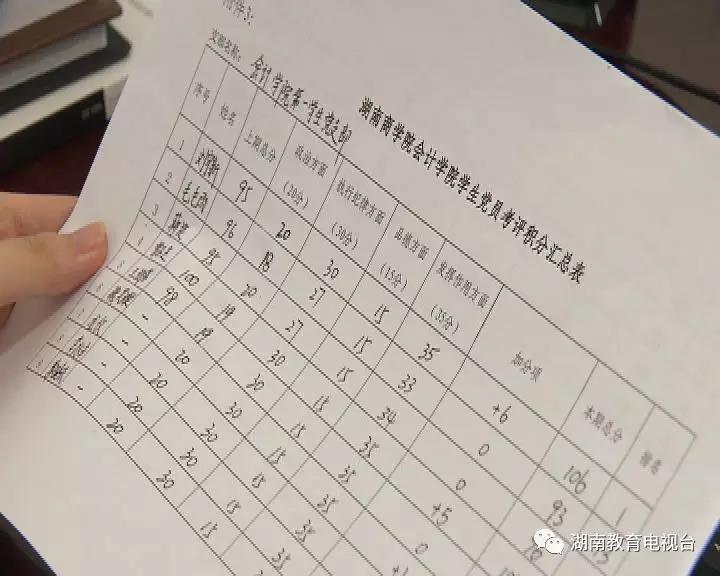 附件3:
湖南商学院会计学院学生党员考评积分汇总表
支部名称: 会计学院第一学生党支部
序号 姓名 上期总分 政治方面(20分) 执行纪律方面(30分) 品德方面(15分) 发挥作用方面(35分) 加分项 本期总分 排名
1 95 20 30 15 35 +6 106 1
2 毛毛雨 96 18 27 15 33 0 93
3 95 20 27 15 34 0
4 100 19 30 15 35 +5
5 98 19 30 15 35 0
6 - 20 30 15 35
7 - 20 30 15 35
8 - 20 30 15 35
9 - 20 30 15
湖南教育电视台